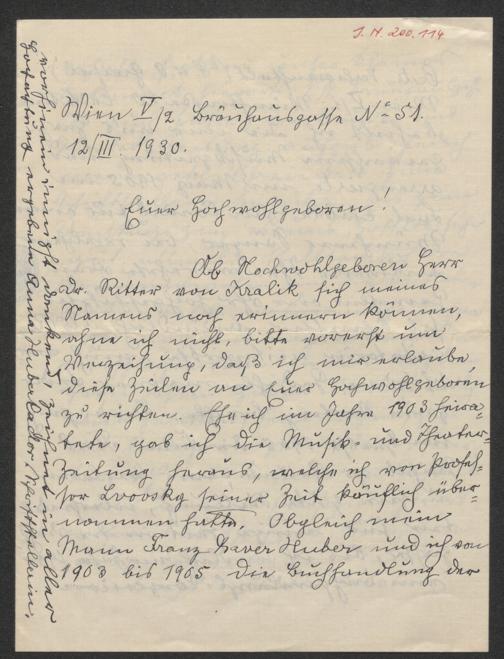 I. N. 200.114
Wien V/2 Bräuhausgasse No 51.
12/III. 1930.
Euer Hochwohlgeboren!
Ob Hochwohlgeboren Herr
Dr. Ritter von Kralik sich meines
Namens noch erinnern können,
ahne ich nicht, bitte vorerst um
Verzeihung, daß ich mir erlaube,
diese Zeilen an Euer Hochwohlgeboren
zu richten. Ehe ich im Jahre 1903 heira-
tete, gab ich die Musik- und Theater-
Zeitung heraus, welche ich von Profes-
sor Lvovsky seiner Zeit käuflich über-
nommen hatte. Obgleich mein
Mann Franz Xaver Huber und ich von
1903 bis 1905 die Buchhandlung der
vorhinein innigst dankend, zeichnet in aller
Hochachtung ergebene Anna Huber Schriftstellerin.